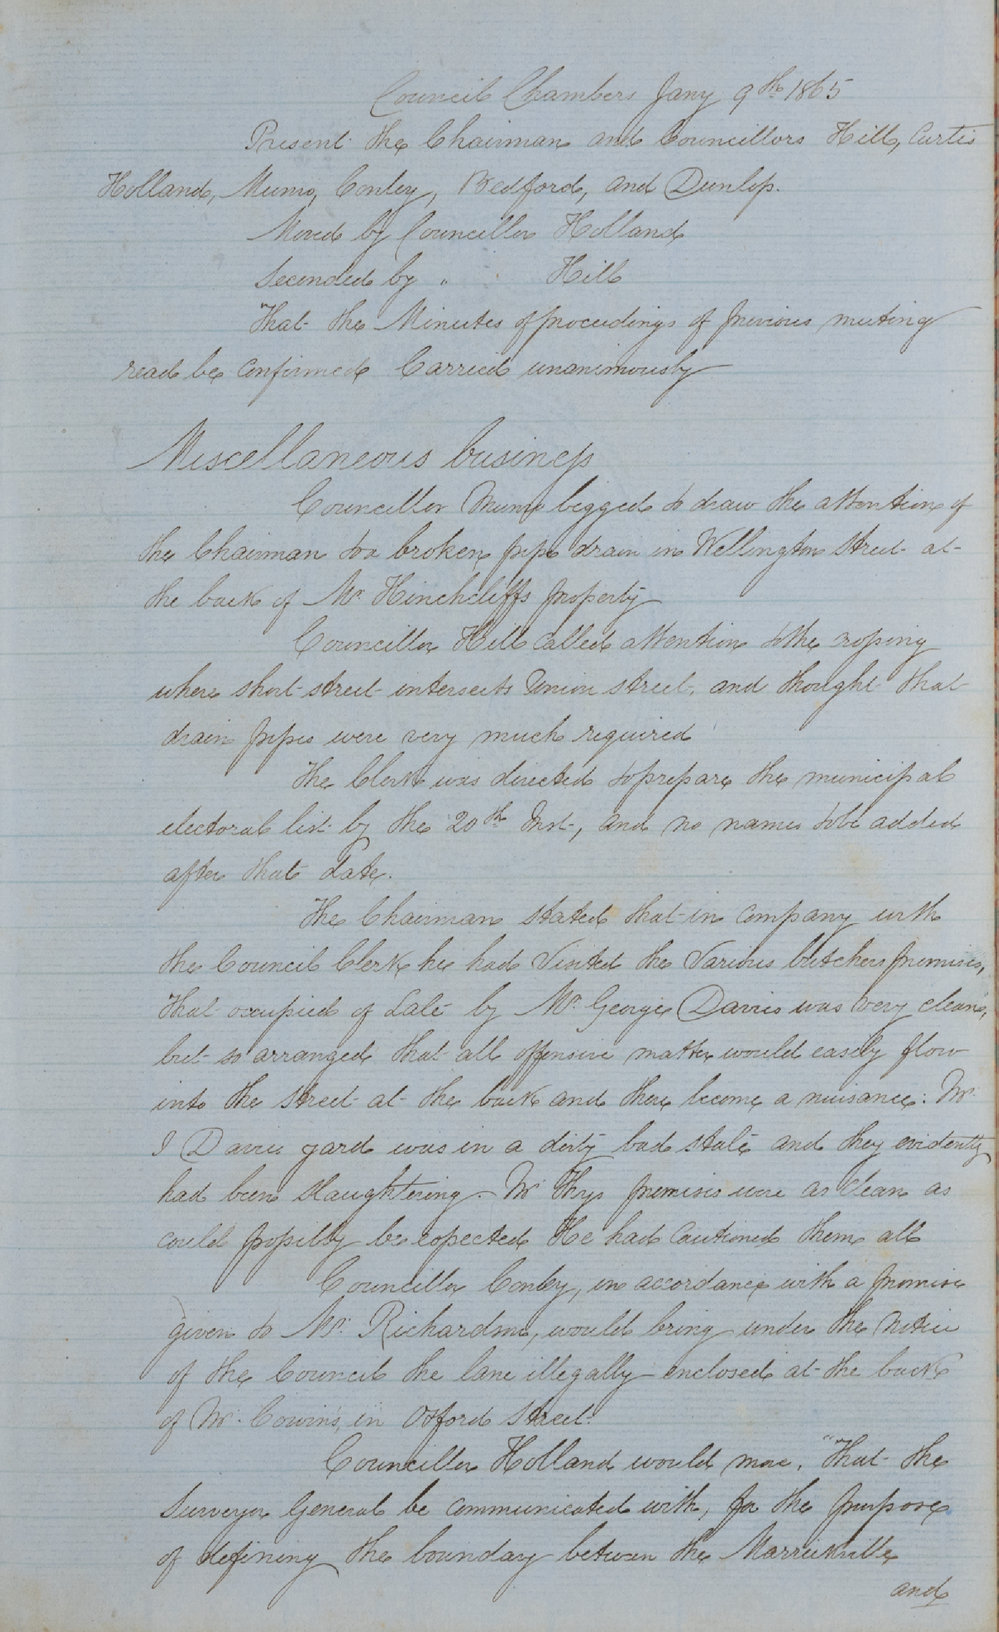 Council Chambers Jany 9th 1865
Present the Chairman and Councillors Hill, Curtis
Holland, Munro, Conley, Bedford, and Dunlop.
Moved by Councillor Holland
Seconded by " Hill
That the Minutes of proceedings of previous meeting
read be confirmed Carried unanimously
Miscellaneous business
Councillor Munro begged to draw the attention of
the Chairman to a broken pipe drain in Wellington Street at
the back of Mr Hinchcliffs property
Councillor Hill called attention to the
where short street intersects Union street, and thought that
drain pipes were very much required
The Clerk was directed to prepare the municipal
electoral list by the 20th Inst, and no names to be added
after that date.
The Chairman stated that in company with
the Council Clerk he had visited the various butchers premises,
that occupied of late by Mr George Davies was very clean,
but so arranged that all offensive matter would easily flow
into the street at the back and there become a nuisance. Mr
I Davies yard was in a dirty bad state and they evidently
had been slaughtering. Mr premises were as clean as
could possibly be expected He had cautioned them all
Councillor Conley, in accordance with a promise
given to Mr. Richardson, would bring under the notice
of the Council the lane illegally enclosed at the back
of Mr. Cowin's, in Oxford Street.
Councillor Holland would move, "That the
Surveyor General be communicated with, for the purpose
of defining the boundary between the Marrickville
and